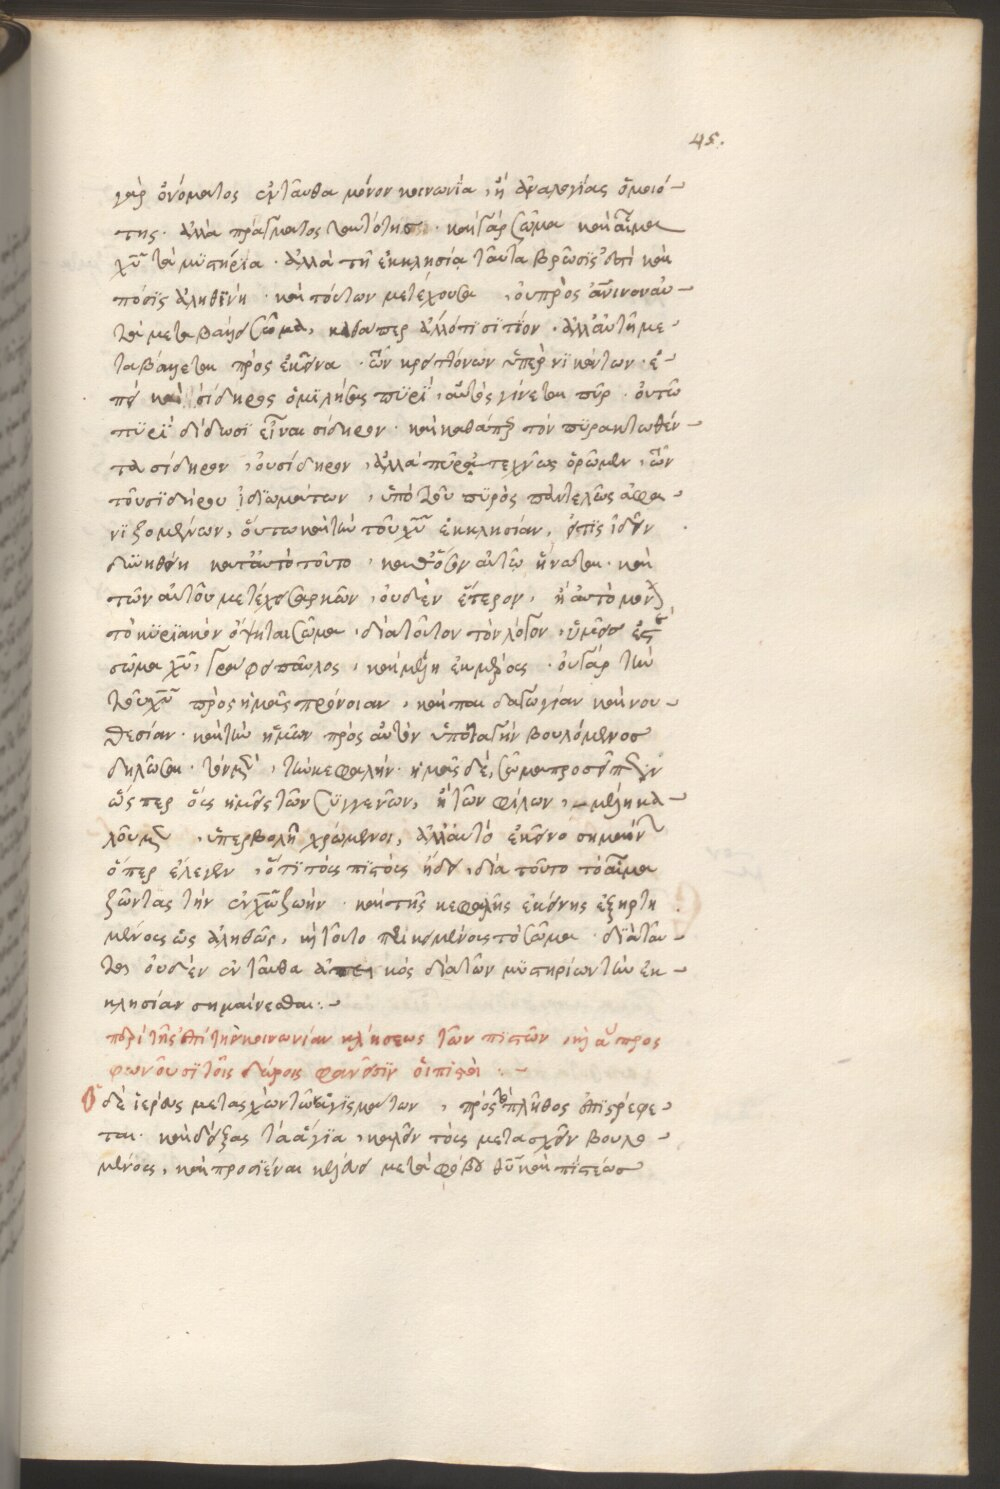 45.
γὰρ ὀνόματος ἐνταῦθα μόνον κοινωνία, ἢ ἀναλογίας ὁμοιό-
της. ἀλλὰ πράγματος ταυτότης. καὶ γὰρ σῶμα καὶ αἷμα
χῦ τὰ μυστήρια. ἀλλὰ τῇ ἐκκλησίᾳ ταῦτα βρῶσίς ἐστι καὶ
πόσϊς ἀληθϊνή. καὶ τούτων μετέχουσα, οὐ πρὸς ἀνθινον αὐ-
τὰ μεταβάλλει σῶμα, καθάπερ ἄλλό τι σιτίον. ἀλλ' αὐτὴ με-
ταβάλλεται πρὸς ἐκεῖνα. τῶν κρειττόνων ὑπερνϊκώντων. ἐ-
πεὶ καὶ σίδηρος ὁμϊλήσας πϋρί, αὐτὸς γίνεται πῦρ. οὐ τῷ
πϋρὶ δίδωσϊ εἶναι σίδηρον. καὶ καθάπερ τὸν πϋρακτωθέν-
τα σίδηρον, οὐ σίδηρον, ἀλλὰ πῦρ ἀτεχνῶς ὁρῶμεν, τῶν
τοῦ σϊδήρου ἰδϊωμάτων, ὑπὸ τοῦ πϋρὸς παντελῶς ἀφα-
νϊζομένων, οὕτω καὶ τὴν τοῦ χῦ ἐκκλησίαν, εἴ τις ἰδεῖν
δυνηθείη κατ' αὐτὸ τοῦτο, καθ' ὅσον αὐτῷ ἥνωται. καὶ
τῶν αὐτοῦ μετέχει σαρκῶν, οὐδὲν ἕτερον, ἢ αὐτὸ μόνον
τὸ κϋρϊακὸν ὄψεται σῶμα, διὰ τοῦτον τὸν λόγον, ὑμεῖς ἐστε
σῶμα χῦ, γράφει παῦλος, καὶ μέλη ἐκ μέρους. οὐ γὰρ τὴν
τοῦ χῦ πρὸς ἡμᾶς πρόνοιαν, καὶ παιδαγωγίαν καὶ νου-
θεσίαν. καὶ τὴν ἡμῶν πρὸς αὐτὸν ὑποταγὴν βουλόμενος
δηλῶσαι. τὸν μὲν, τὴν κεφαλήν. ἡμᾶς δέ, σῶμα προσεῖπεν
ὥσπερ οὖς ἡμεῖς τῶν συγγενῶν, ἢ τῶν φίλων, μέλη κα-
λοῦμεν, ὑπερβολῇ χρώμενοι, ἀλλ' αὐτὸ ἐκεῖνο σημαίνων
ὅπερ ἔλεγεν, ὅτϊ τοὺς πϊστοὺς ἤδη, διὰ τοῦτο τὸ αἷμα
ζῶντας τὴν ἐν χῶ ζωήν. καὶ τῆς κεφαλῆς ἐκείνης ἐξηρτη
μένους ὡς ἀληθῶς, καὶ τοῦτο περικειμένους τὸ σῶμα. δϊὰ ταῦ-
τα οὐδὲν ἐνταῦθα ἀπεικὸς διὰ τῶν μυστηρίων τὴν ἐκ-
κλησίαν σημαίνεσθαι:-
περὶ τῆς ἐπὶ τὴν κοινωνίαν κλήσεως τῶν πϊστῶν, καὶ ἃ προς
φωνοῦσϊ τοῖς δώροις φανεῖσϊν οἱ πιστοί :-
Ὁ δὲ ἱερεὺς μετασχὼν τῶν ἁγϊασμάτων, πρὸς τὸ πλῆθος ἐπϊστρέφε-
ται. καὶ δείξας τὰ ἅγϊα, καλεῖ τοὺς μετασχεῖν βουλο-
μένους, καὶ προσϊέναι κελεύει μετὰ φόβου θῦ καὶ πίστεως